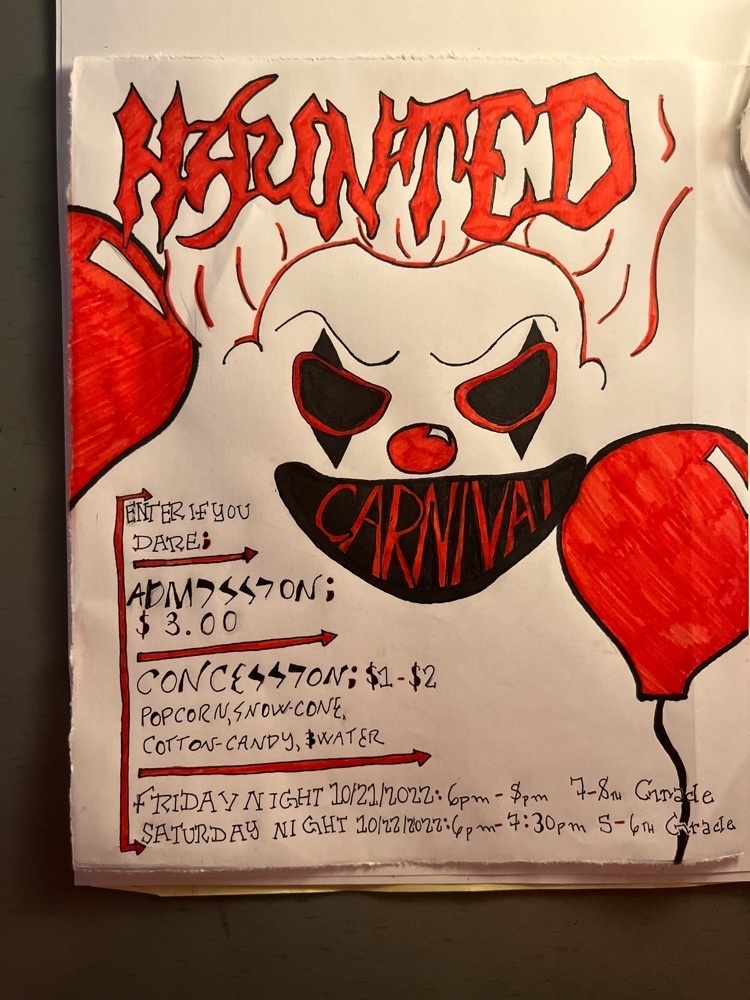 HAUNTED
CARNIVAL
ENTER IF YOU
DARE;
ADMISSION;
$ 3.00
CONCESSION; $1-$2
POPCORN, SNOW-CONE,
COTTON-CANDY, $WATER
FRIDAY NIGHT 10/21/2022: 6pm - 8pm 7-8TH Grade
SATURDAY NIGHT 10/22/2022: 6pm - 7:30pm 5-6TH Grade